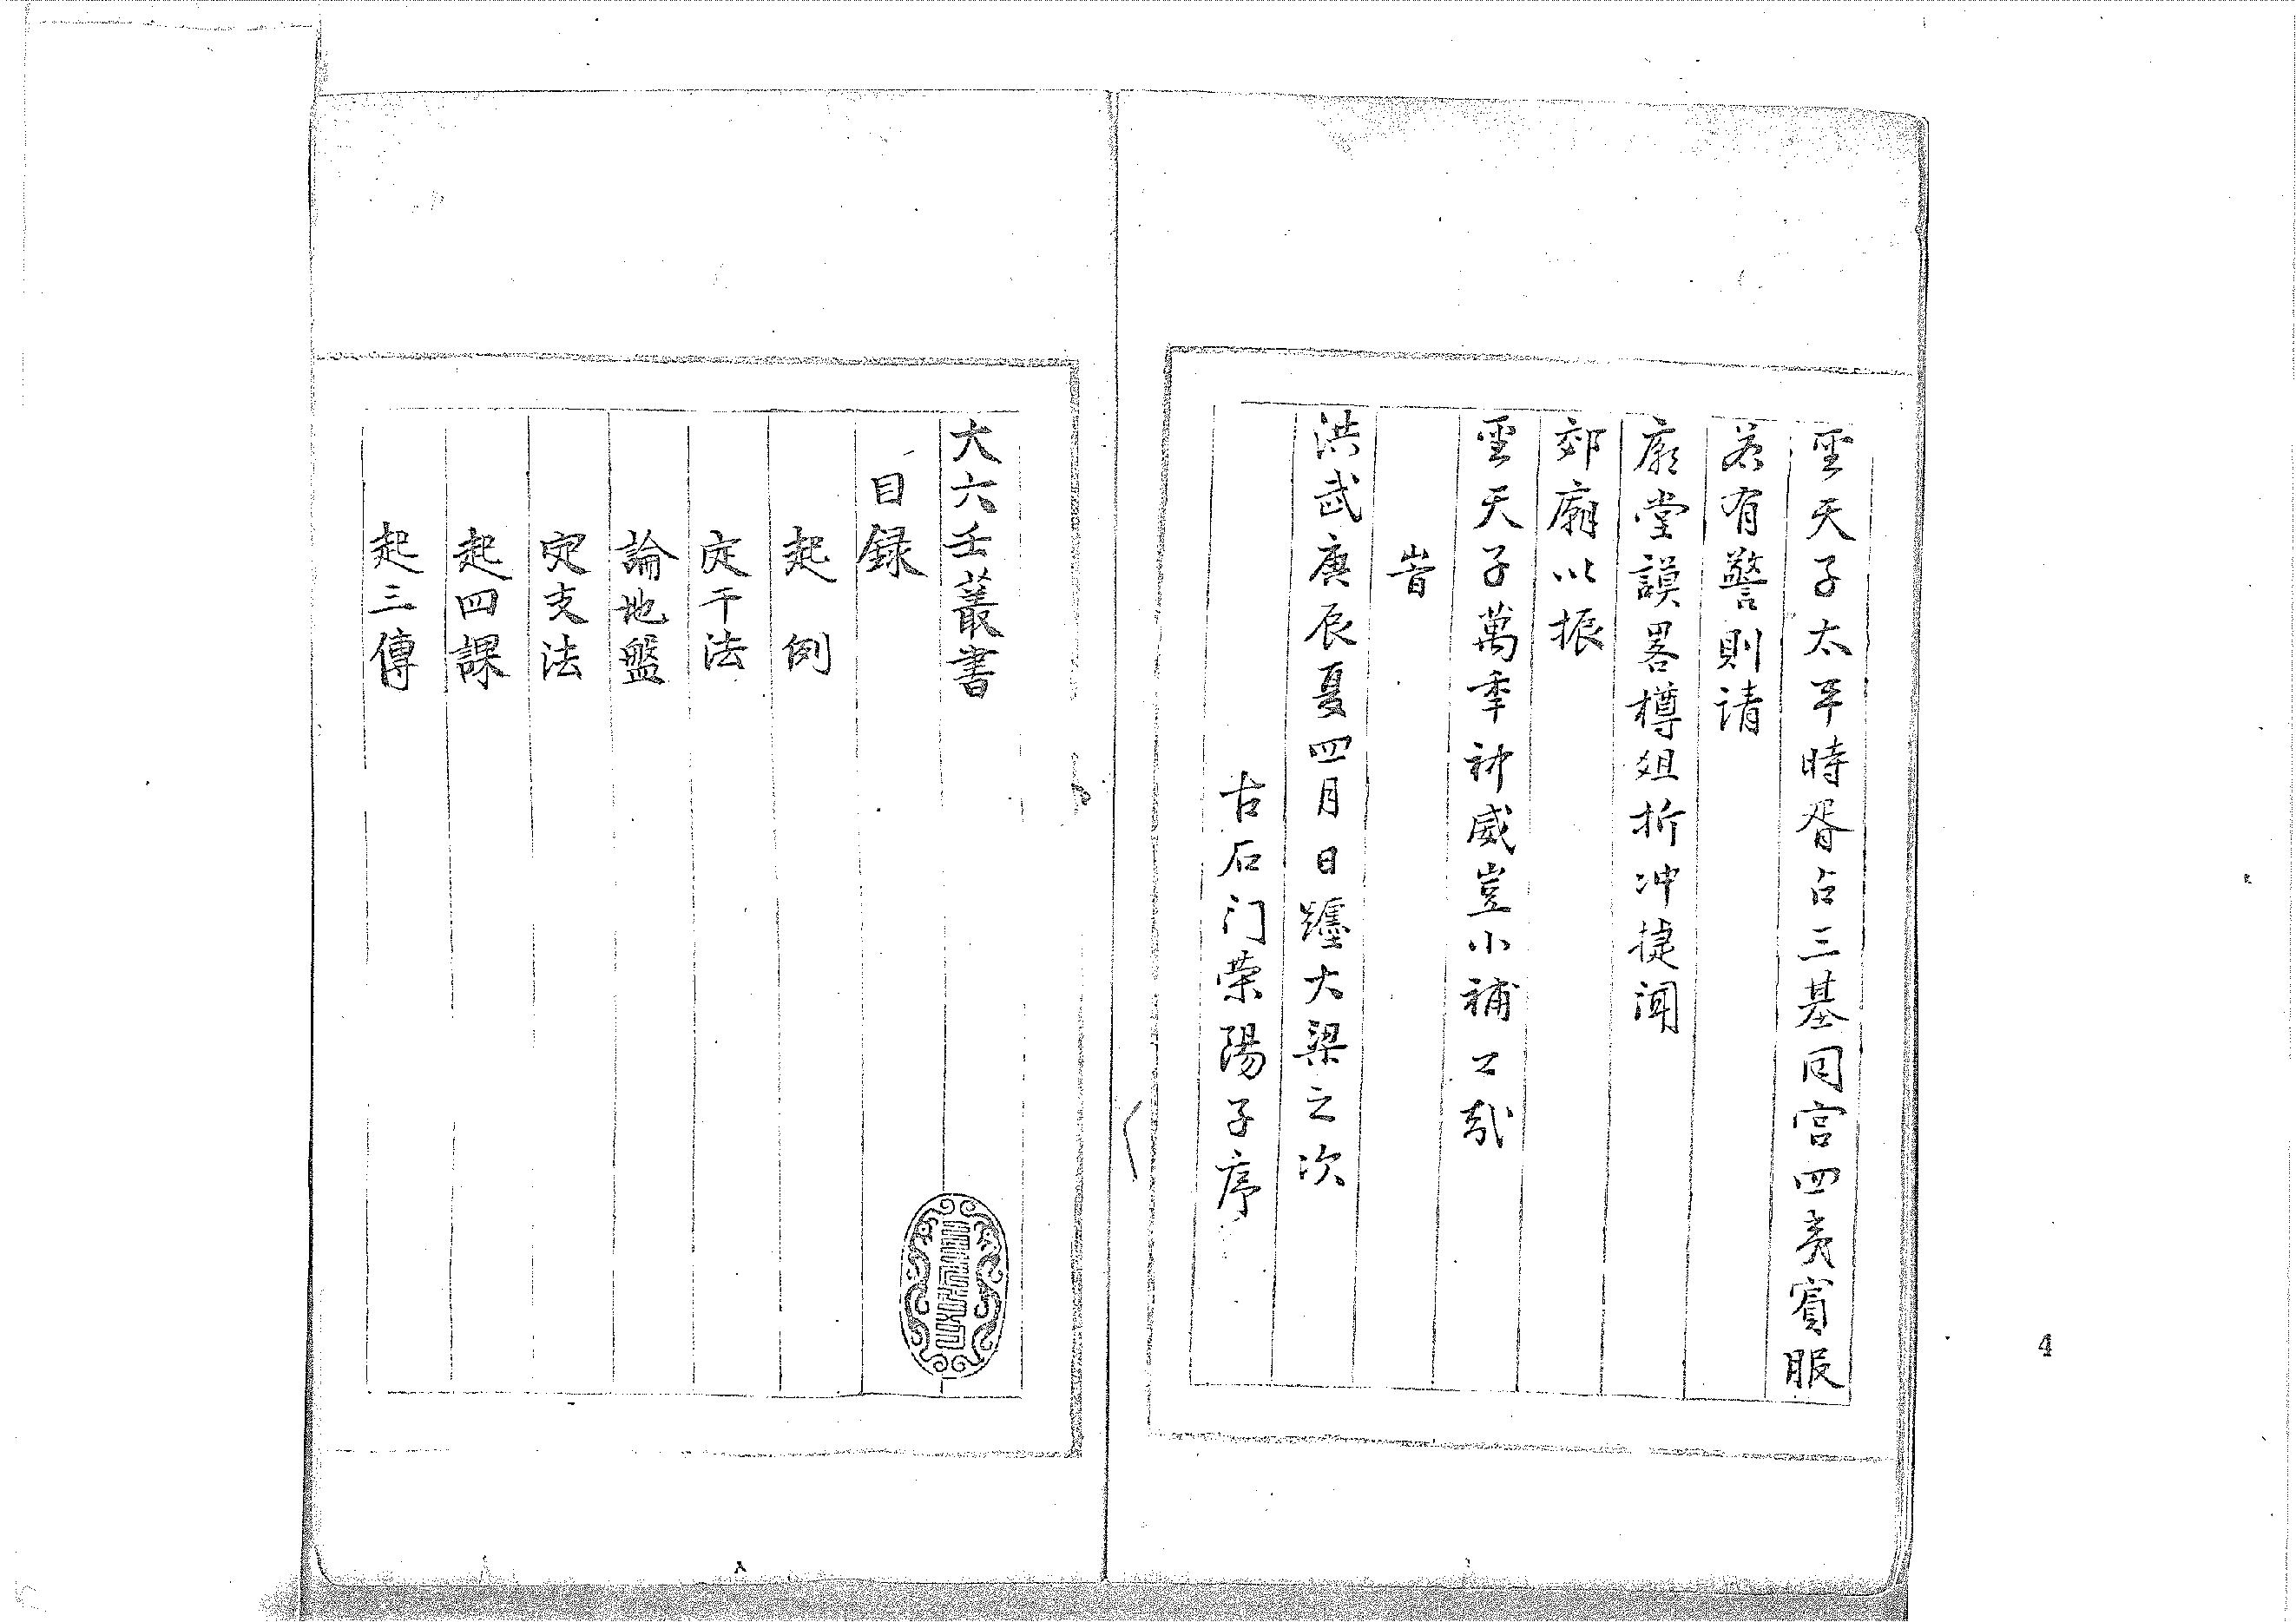 聖天子太平時胥占三基同宮四夷賓服
若有警則请
廟堂謨畧樽俎折冲捷闻
郊廟以振
聖天子萬季神威豈小補云㢤
峕
洪武庚辰夏四月日躔大梁之次
古石门荣陽子序
大六壬叢書
目録
起例
定干法
論地盤
定支法
起四課
起三傳
4